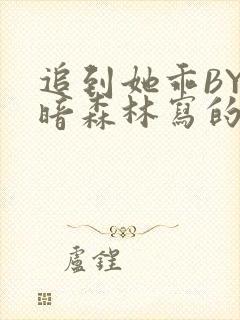 追到她乖BY
暗森林寫的
盧鋥